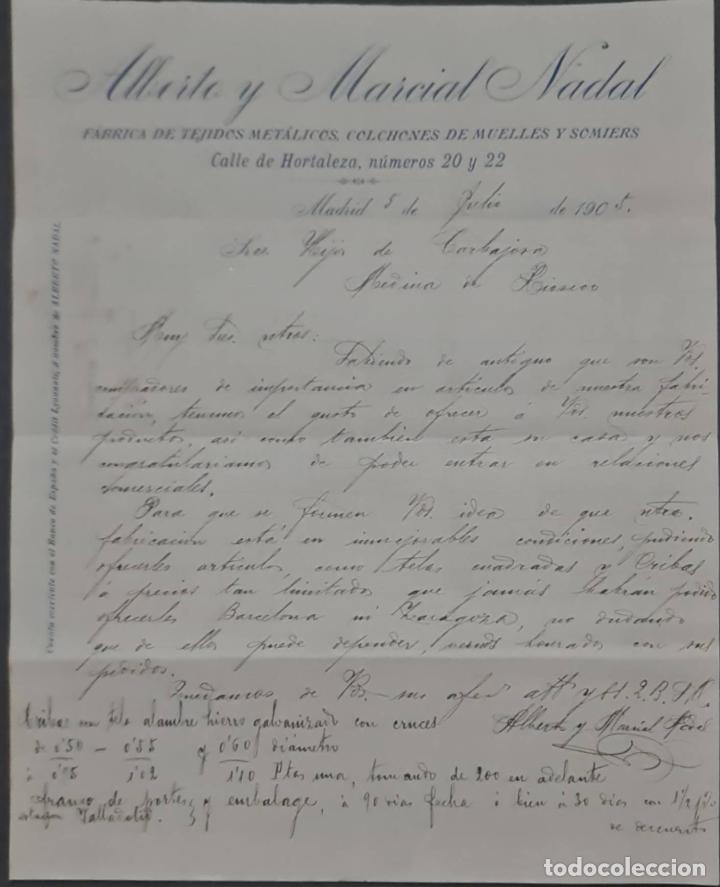 Alberto y Marcial Nadal
FÁBRICA DE TEJIDOS METÁLICOS, COLCHONES DE MUELLES Y SOMIERS
Calle de Hortaleza, números 20 y 22
Madrid 5 de Julio de 1905.
Sres. Hijos de Carbajosa
Medina de Rioseco
Cuenta corriente con el Banco de España y el Crédit Lyonnais, á nombre de ALBERTO NADAL
Muy Sres. ntros:
Sabiendo de antiguo que son Vds.
compradores de importancia en artículos de nuestra fabri-
cación, tenemos el gusto de ofrecer á Vds nuestros
productos, así como tambien esta su casa y nos
congratulariamos de poder entrar en relaciones
comerciales.
Para que se formen Vds. idea de que ntra.
fabricación está en inmejorables condiciones, pudiendo
ofrecerles artículos, como telas cuadradas y Cribas
á precios tan limitados que jamás habrán podido
ofrecerles Barcelona ni Zaragoza, no dudando
que de ellos puede depender, vernos honrados con sus
pedidos.
Quedamos de Vds. sus afmos atts y S.S. Q.B.S.M.
Cribas con tela alambre hierro galvanizado con cruces
Alberto y Marcial Nadal
de 0'50 — 0'55 y 0'60 diámetro
á 0'95 1'02 1'10 Ptas una, tomando de 200 en adelante
franco de portes y embalage, á 90 dias fecha ó bien á 30 dias con 1 1/2 p%
estacion Valladolid.
de descuento
todocoleccion